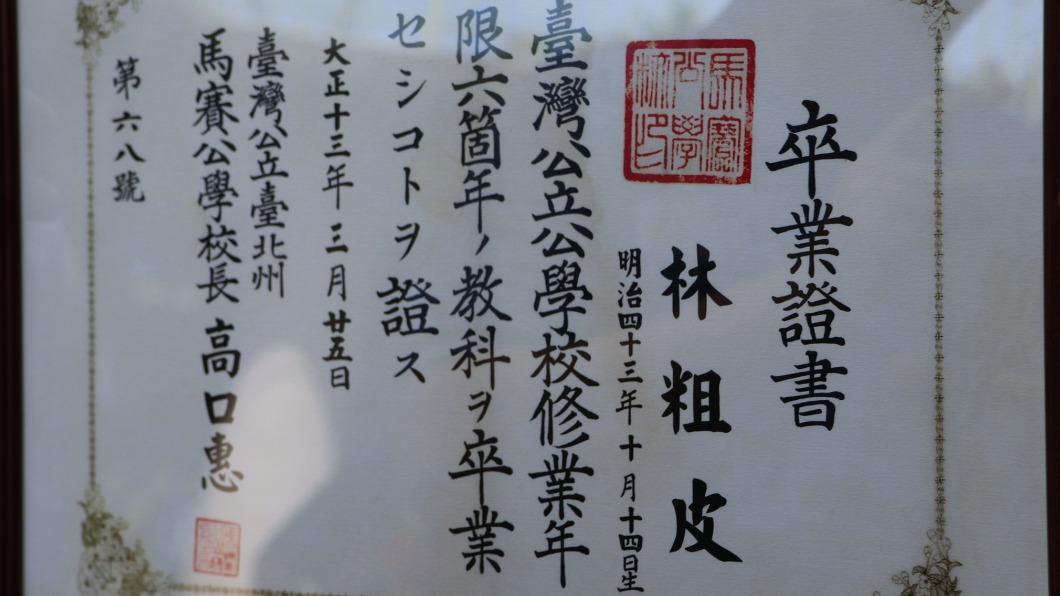 卒業證書
林粗皮
明治四十三年十月十四日生
馬賽公學校印
臺灣公立公學校修業年
限六箇年ノ教科ヲ卒業
セシコトヲ證ス
大正十三年三月廿五日
臺灣公立臺北州
馬賽公學校長 高口惠
第六八號